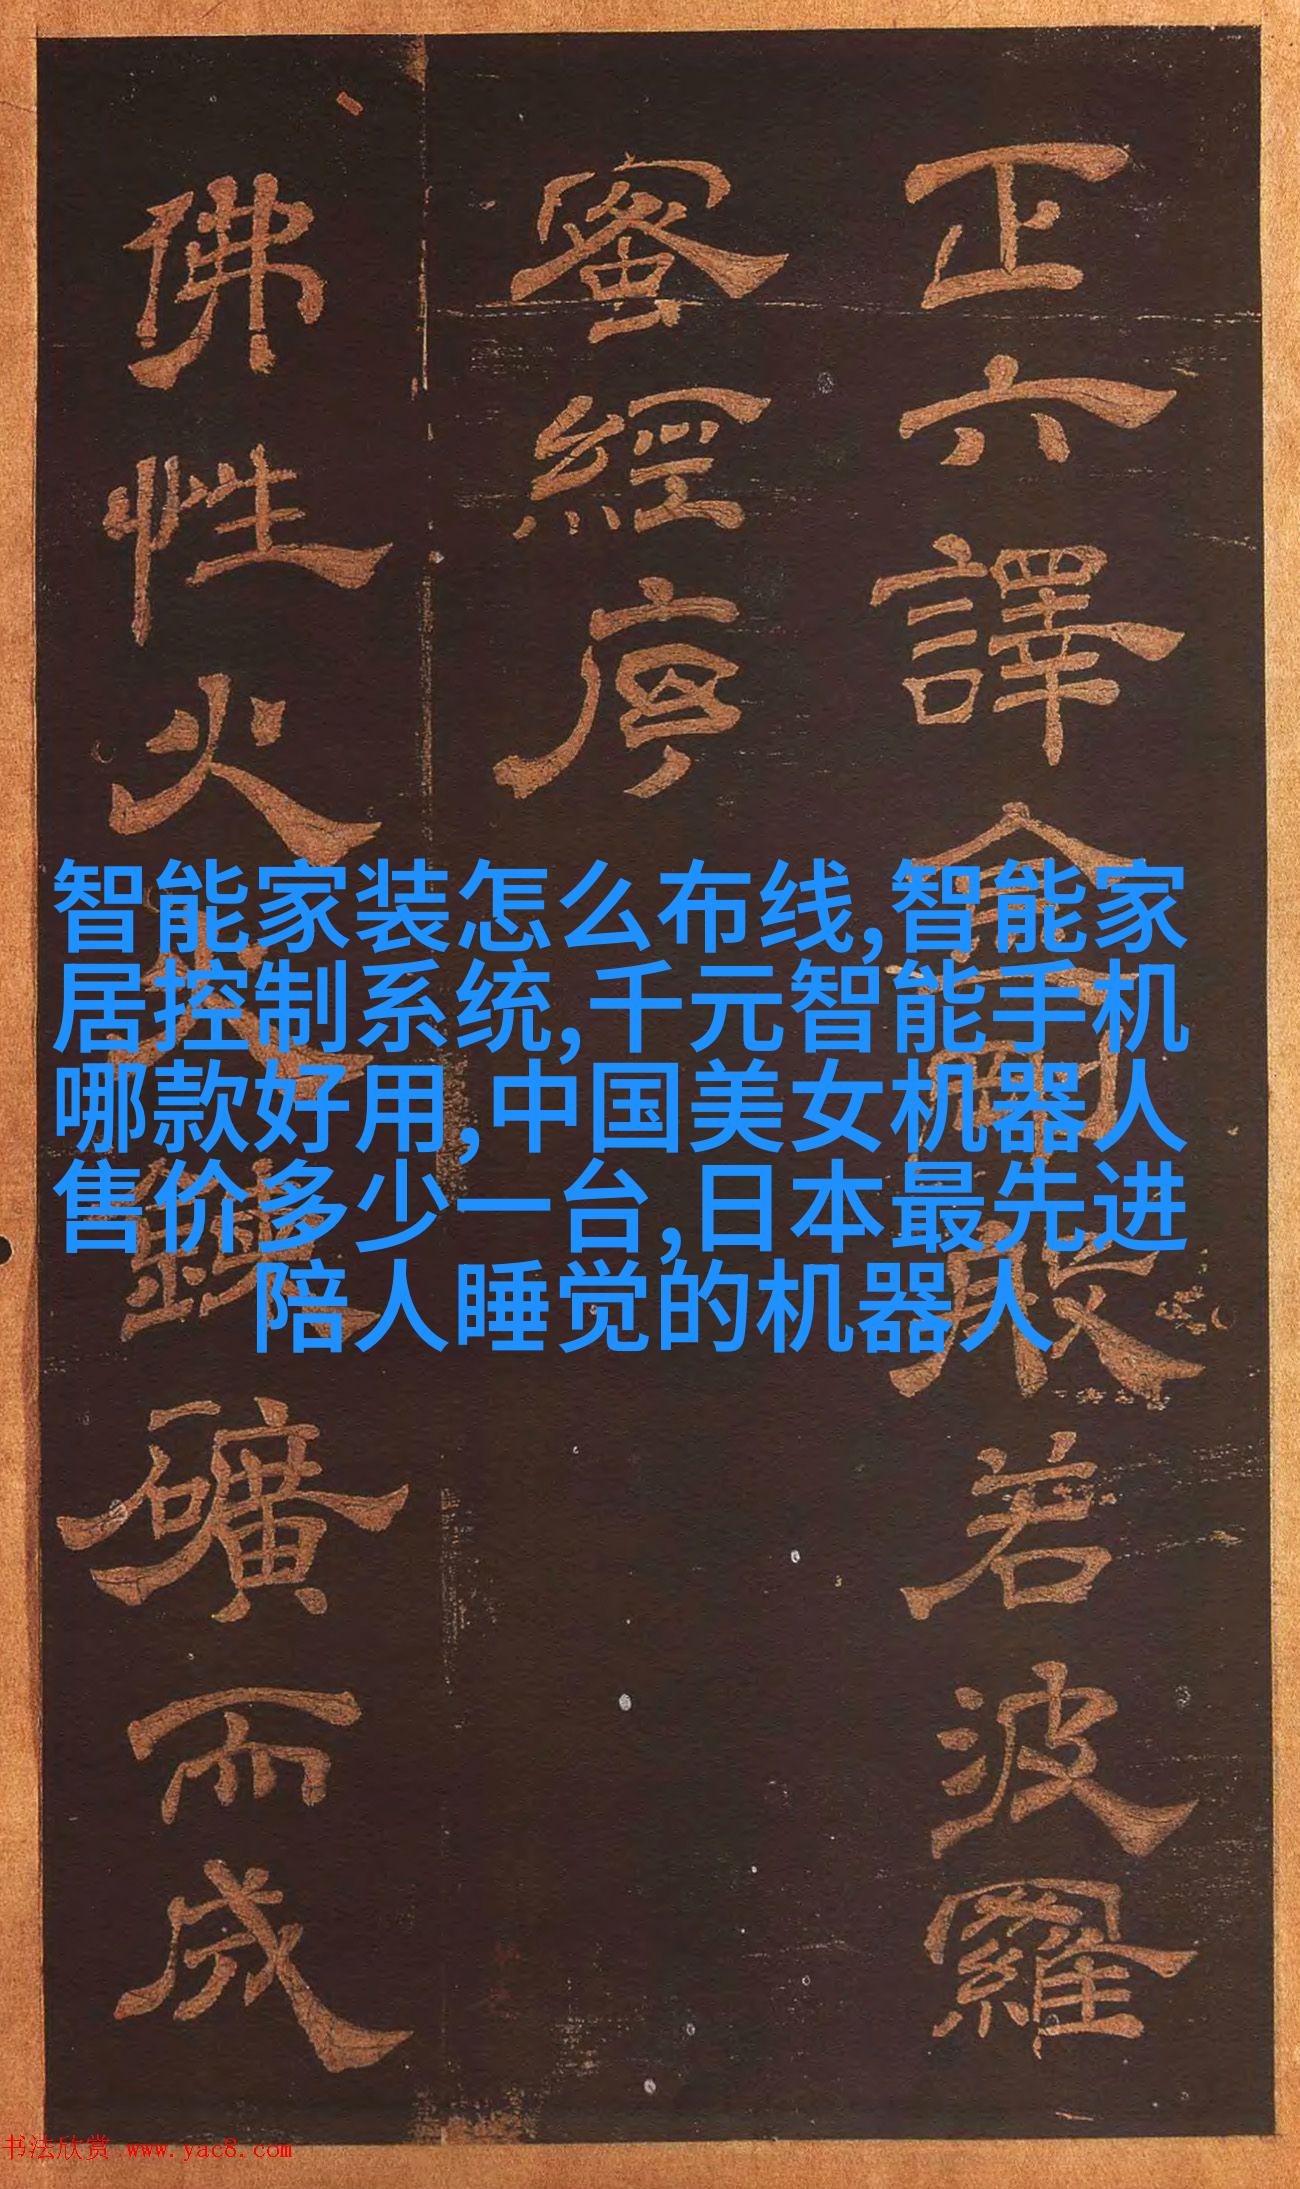 正六譯金剛般若波羅
蜜經序
佛性火礦而成
智能家装怎么布线,智能家
居控制系统,千元智能手机
哪款好用,中国美女机器人
售价多少一台,日本最先进
陪人睡觉的机器人
书法欣赏 www.yac8.com